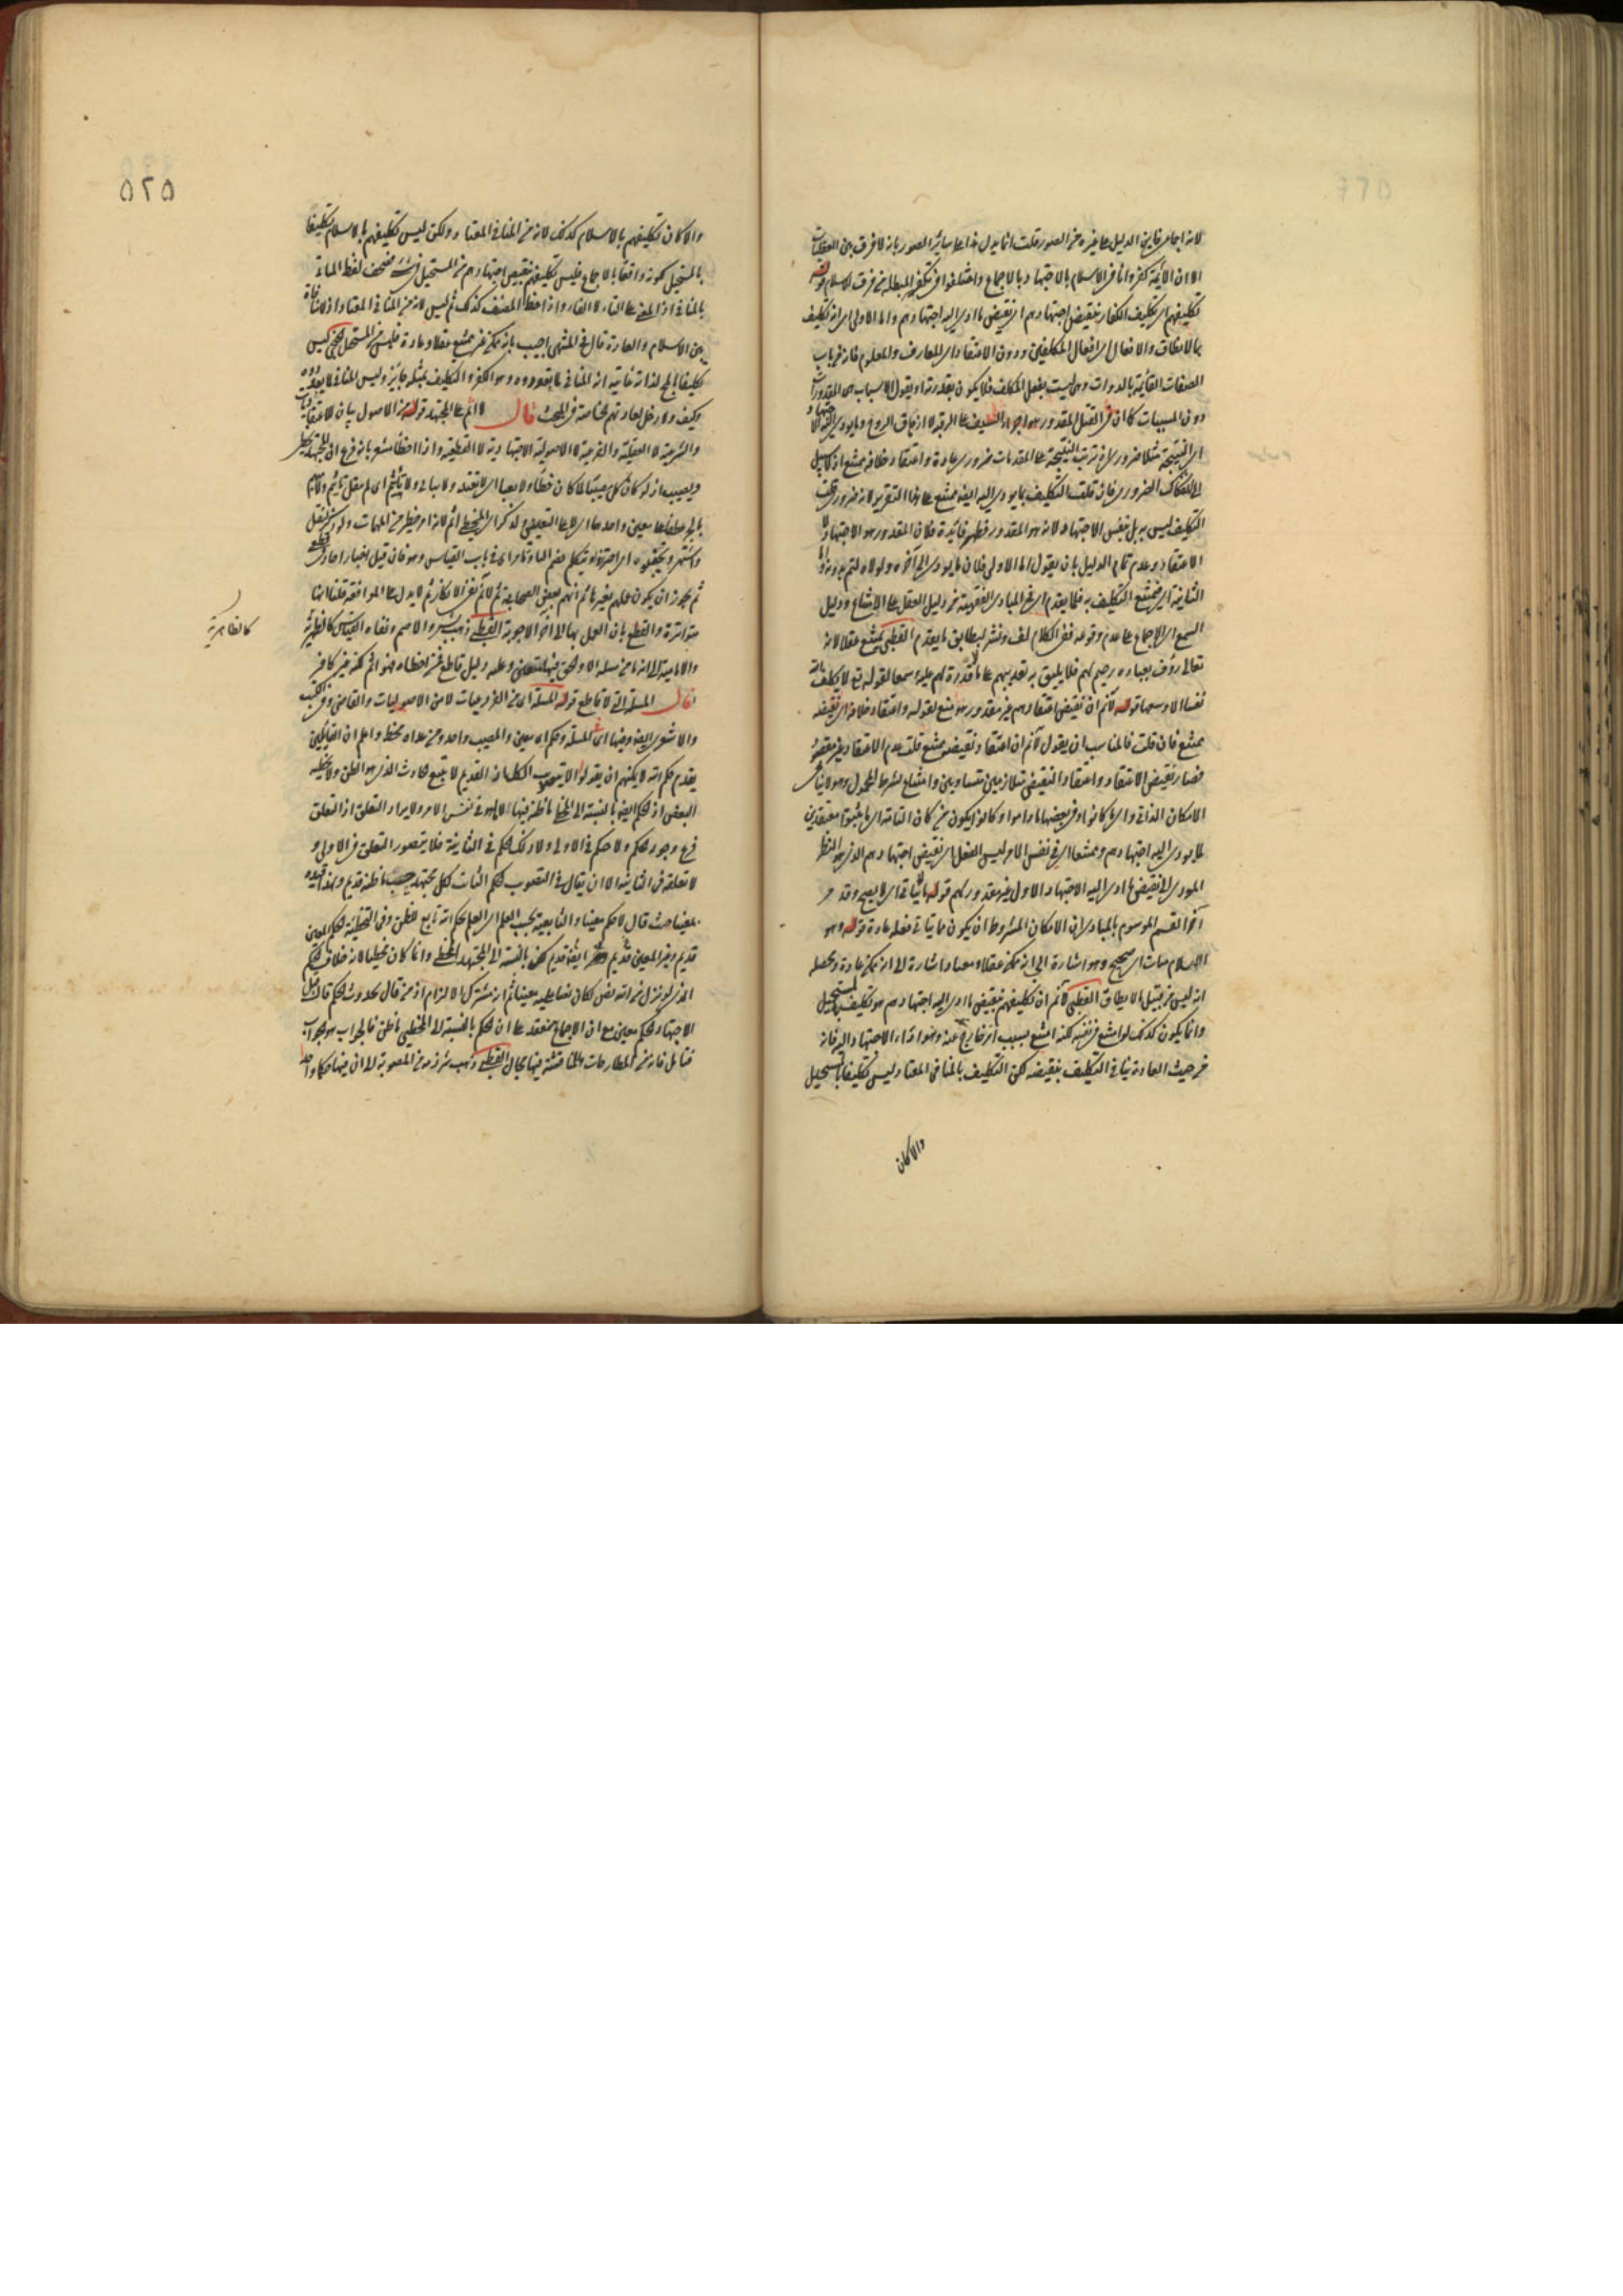 لانه اجماع فاين الدليل على غيره من الصور قلت انما يدل هذا على سائر الصور بانه لا فرق بين العقليات
الا ان الائمة كفروا نافي الاسلام بالاجتهاد بالاجماع واختلفوا في تكفير المبطلة من فرق الاسلام قوله
تكليفهم اى تكليف الكفار بنقيض اجتهادهم اى نقيض ما ادى اليه اجتهادهم واما الاولى اى انه تكليف
بما لا يطاق والافعال اى افعال المكلفين ودون الاعتقاد اى المعارف والعلوم فانه من باب
الصفات القائمة بالذوات وهى ليست بفعل المكلف فلا يكون بقدرته او يقول الاسباب هى المقدورات
دون المسببات كما ان فى القتل المقدور هو اجراء السيف على الرقبة لا ازهاق الروح وما يؤدى اليه الاجتهاد
اى النتيجة مثلا ضرورى اى ترتب النتيجة على المقدمات ضرورى عادة واعتقاد خلافه ممتنع اذ لا سبيل
الى انفكاك الضرورى فان قلت التكليف بما يؤدى اليه ايضا ممتنع على هذا التقرير لانه ضرورى قلت
التكليف ليس به بل بنفس الاجتهاد لانه هو المقدور فظهر فائدة فلان المقدور هو الاجتهاد لا
الاعتقاد وعدم تمام الدليل بان يقول اما الاولى فلان ما يؤدى الى آخره ولولاه لتم بدونه واما
الثانية اى فيمتنع التكليف به فلما يقدم اى فى المبادى الفقهية من دليل العقل على الامتناع ودليل
السمع اى الاجماع على عدم وقوعه ففى الكلام لف ونشر ليطابق ما يقدم القطبى يمتنع عقلا لانه
تعالى رؤف بعباده رحيم بهم فلا يليق به تعذيبهم على ما لا قدرة لهم عليه وسمعا لقوله تع لا يكلف الله
نفسا الا وسعها قوله لا نم ان نقيض اعتقادهم غير مقدور هو منع لقوله واعتقاد خلافه اى نقيضه
ممتنع فان قلت فالمناسب ان يقول لا نم ان اعتقاد نقيضه ممتنع قلت عدم الاعتقاد غير مقصود
فصار نقيض الاعتقاد واعتقاد النقيض متلازمين متساويين وامتناع بشرط المحمول وهو لا ينافى
الامكان الذاتى واى ما كانوا وفى بعضها ما داموا وكانوا يكون من كان التامة اى ما يثبتوا معتقدين
لما يؤدى اليه اجتهادهم وممتنعا اى فى نفس الامر ليس الفعل اى نقيض اجتهادهم الذى هو النظر
المؤدى الى نقيض ما ادى اليه الاجتهاد الاول غير مقدور لهم قوله ما يتاتى اى لا يصح وقد مر
آخر القسم الموسوم بالمبادى ان الامكان المشروط ان يكون مما يتاتى فعله عادة قوله وهو
الاسلام متات اى صحيح وهو اشارة الى انه ممكن عقلا ومعتادا شارة الى انه ممكن عادة ومحصله
انه ليس من قبيل ما لا يطاق القطبى لا نم ان تكليفهم نقيض ما ادى اليه اجتهادهم هو تكليف بالمستحيل
وانما يكون كذلك لو امتنع فى نفسه لكنه امتنع بسبب امر خارج عنه وهو اداء الاجتهاد اليه فانه
من حيث العادة ينافى التكليف بنقيضه لكن التكليف بالمنافى المعتاد ليس تكليفا بالمستحيل
والا كان
٥٢٥
والا كان تكليفهم بالاسلام كذلك لانه من المنافى المعتاد ولكن ليس تكليفهم بالاسلام تكليفا
بالمستحيل لكونه واقعا بالاجماع فليس تكليفهم نقيض اجتهادهم من المستحيل فى شئ فصحف لفظ المتاتى
بالمنافى اذ المعنى على التاء لا الفاء واذا حفظ المصنف كذلك ثم ليس لانه من المنافى المعتاد اذ لا منافاة
بين الاسلام والعادة قال فى المنتهى اجيب بانه ممكن غير ممتنع عقلا وعادة فليس من المستحيل الحجى ليس
تكليفا بالمحال لذاته غايته انه المنافى لما يعتقدونه وهو الكفر والتكليف بمثله جائز وليس المنافى لما يعتادونه
وكيف ولا دخل لعادتهم بخاصة فى المبحث قال لا اثم على المجتهد قوله من الاصول بيان للاعتقاديات
والشرعية لا العقلية والفرعية لا الاصولية الاجتهادية لا القطعية واذا اخطأ مشعر بانه فرع ان المجتهد يخطئ
ويصيب اذ لو كان كل مصيبا لما كان خطأ ولا يعبأ اى لا يعتد ولا يبالى ولا يتأثم اى لم يقل تاثيم ولا تاثيم
بالجر عطفا على معين واحدهما اى لا على التعيين ولذكر اى المخطئ اثم لانه امر خطير من المهمات ولو ذكر لنقل
واشتهر ويخطئونه اى احترز ولو تكلم بضم الياء وتمام اى فى باب القياس وهو فان قيل اخبار احاد
ثم يجوز ان يكون عملهم بغيرها ثم انهم بعض الصحابة ثم لا نم نفى الانكار ثم لا يدل على الموافقة قلنا انها
متواترة والقطع بان العمل بها الى آخر الاجوبة القطبى ذهب بشر والاصم ونفاة القياس كالظاهرية
كالظاهرية
والامامية الى انه ما من مسئلة الا والحق فيها متعين وعليه دليل قاطع فمن اخطأه فهو اثم لكنه غير كافر
قال المسئلة التى لا قاطع قوله المسئلة اى من الفروعيات لا من الاصوليات والقاضى وفى الكتب
والاشعرى ايضا وفيها اى المسئلة وحكم اى معين والمصيب واحد ومن عداه مخطئ واعلم ان القائلين
بقدم حكم الله لا يمكنهم ان يقولوا الا بتصويب الكل اذ القديم لا يتبع لحادث الذى هو الظن ولا تخطئة
البعض اذ الحكم ايضا بالنسبة الى المخطئ ما ظنه فيها لا ما هو فى نفس الامر ولا يراد التعلق اذ التعلق
فرع وجود الحكم ولا حكم فى الاولى ولا ذلك الحكم فى الثانية فلا يتصور التعلق فى الاولى و
لا تعلقه فى الثانية الا ان يقال فى التصويب حكم الثابت لكل مجتهد حسب ما ظنه قديم ولهذا قيده
بمعينا حيث قال لا حكم معينا والتابعية بحسب العلم اى العلم بحكم الله تابع للظن وفى التخطئة الحكم المعين
قديم وغير المعين ايضا قديم لكن بالنسبة الى المجتهد المخطئ وانما كان مخطئا لانه خلاف الحكم
الذى لو نزل من الله نص لكان نصا عليه معينا ثم انه مشترك الالزام اذ من قال بحدوث الحكم قال قبل
الاجتهاد لحكم معين مع ان الاجماع منعقد على ان الحكم بالنسبة الى المخطئ ما ظن فالجواب هو الجواب
فتامل فانه من المطارحات والمناقشة فيها مجال القطبى ذهب شرذمة من المصوبة الى ان فيها حكما واحدا